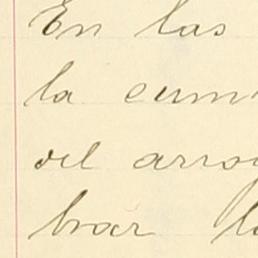 En las
la cum
del arro
brar l